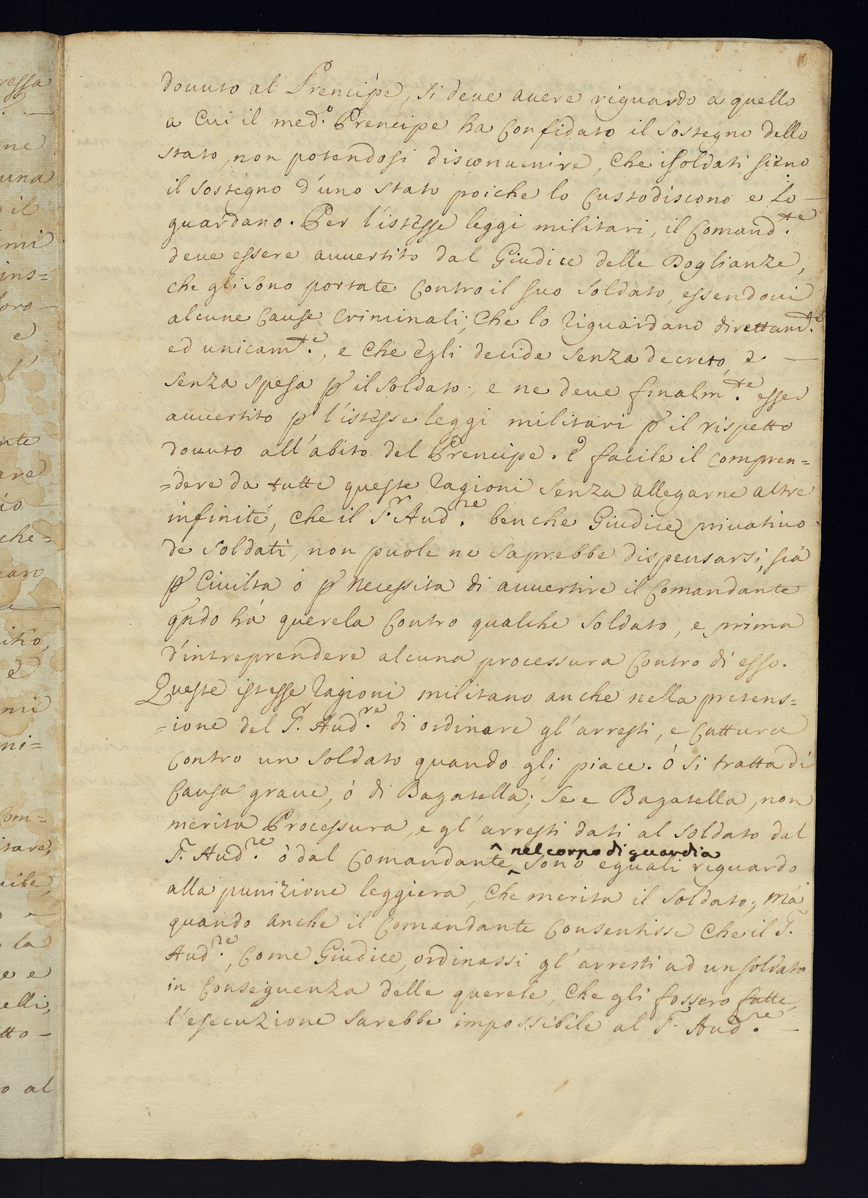 douuto al Prencipe, si deue auere riguardo a quello
a Cui il med.º Prencipe ha Confidato il sostegno dello
stato, non potendosi disconuenire, che i soldati sieno
il sostegno d'uno stato poiche lo Custodiscono e lo
guardano. Per l'istesse leggi militari, il Comand.te
deue essere auuertito dal Giudice delle Doglianze,
che gli sono portate Contro il suo soldato, essendoui
alcune Cause Criminali, Che lo riguardano direttam.te
ed unicam.te, e che egli decide senza decreto, e
senza spesa p il soldato, e ne deue finalm.te esser
auuertito p l'istesse leggi militari p il rispetto
douuto all'abito del Prencipe. È facile il compren=
=dere da tutte queste ragioni senza allegarne altre
infinité, Che il S.r Aud.re benche Giudice priuatiuo
de soldati, non puole ne saprebbe dispensarsi, sia
p Ciuilta ó p necessita di auuertire il Comandante
qndo há querela Contro qualche soldato, e prima
d'intreprendere alcuna processura Contro di esso.
Queste istesse ragioni militano anche nella pretens=
=ione del S. Aud.re di ordinare gl'arresti, e Cattura
Contro un soldato quando gli piace. ó si tratta di
Causa graue, ó di Bagatella; se e Bagatella, non
merita Processura, e gl'arresti dati al soldato dal
S. Aud.re ó dal Comandante nel corpo di guardia sono eguali riguardo
alla punizione leggiera, Che merita il soldato; má
quando anche il Comandante Consentisse Che il S.
Aud.re, Come Giudice, ordinassi gl'arresti ad un soldato
in Conseguenza delle querele, Che gli fossero fatte,
l'esecuzione sarebbe impossibile al S. Aud.re